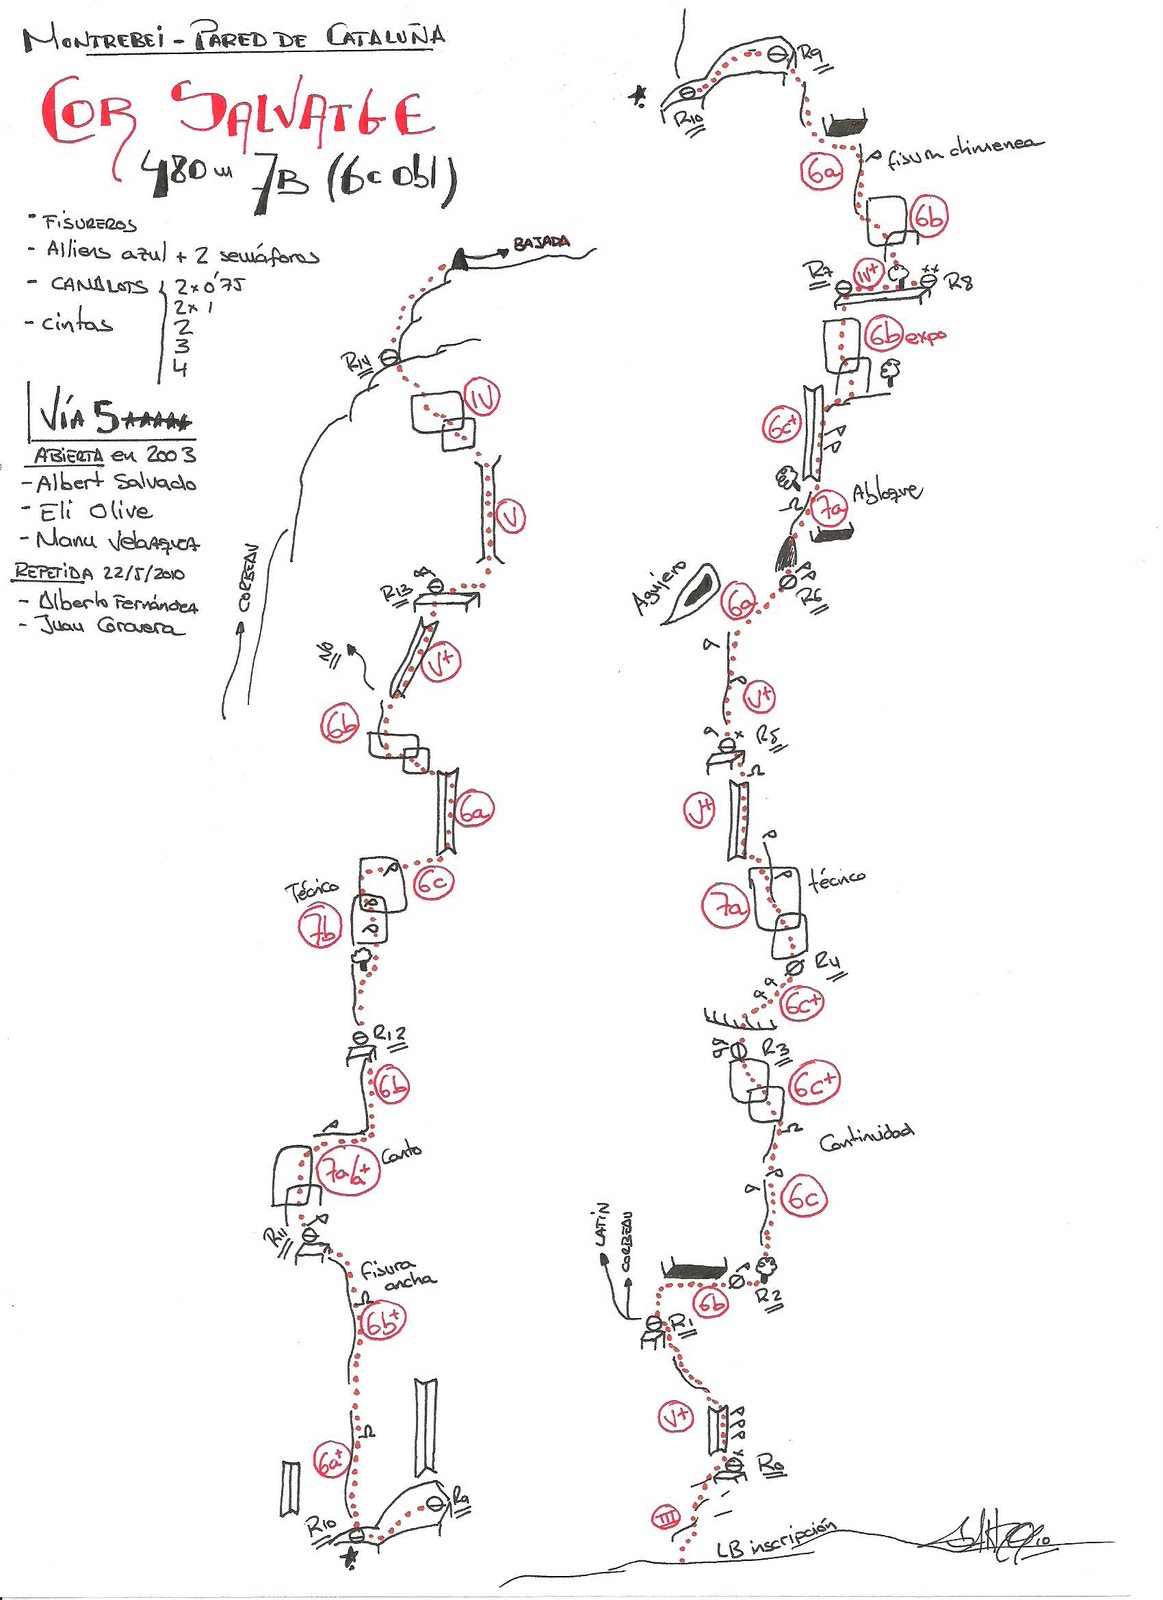 MONTREBEI - PARED DE CATALUÑA
COR SALVATGE
480 m 7B (6c obl)
- FISUREROS
- Alliens azul + 2 semáforos
- CAMALOTS 2x0'75
2x1
2
3
4
- cintas
VÍA 5*****
ABIERTA en 2003
- Albert Salvado
- Eli Olive
- Manu Velazquez
REPETIDA 22/5/2010
- Alberto Fernández
- Juan Coravera
CORBEAU
BAJADA
R14
IV
V
R13
V+
6b
6a
6c
Técnico
7b
R12
6b
7a/a+
Canto
R11
fisura
ancha
6b+
6a+
R10
R9
R9
R10
6a
fisura chimenea
6b
R7
IV+
R8
6b expo
6c+
7a
Abloque
R6
Agujero
6a
V+
R5
V+
7a
técnico
R4
6c+
R3
6c+
Continuidad
6c
LATIN
CORBEAU
6b
R2
R1
V+
R0
III
LB inscripción
10